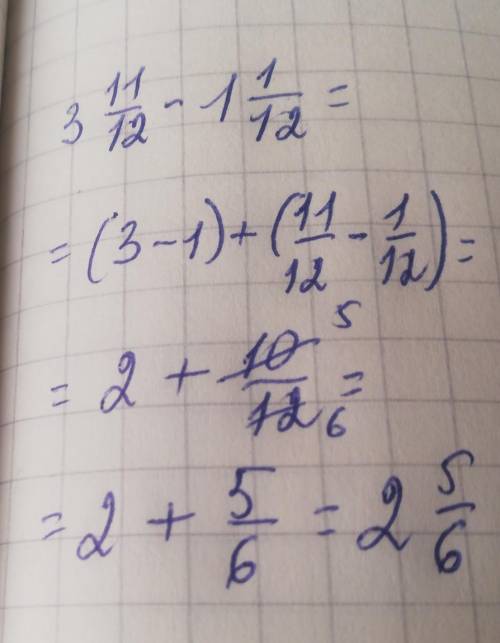 3 11/12 - 1 1/12 =
= (3 - 1) + (11/12 - 1/12) =
= 2 + 10/12 5/6 =
= 2 + 5/6 = 2 5/6